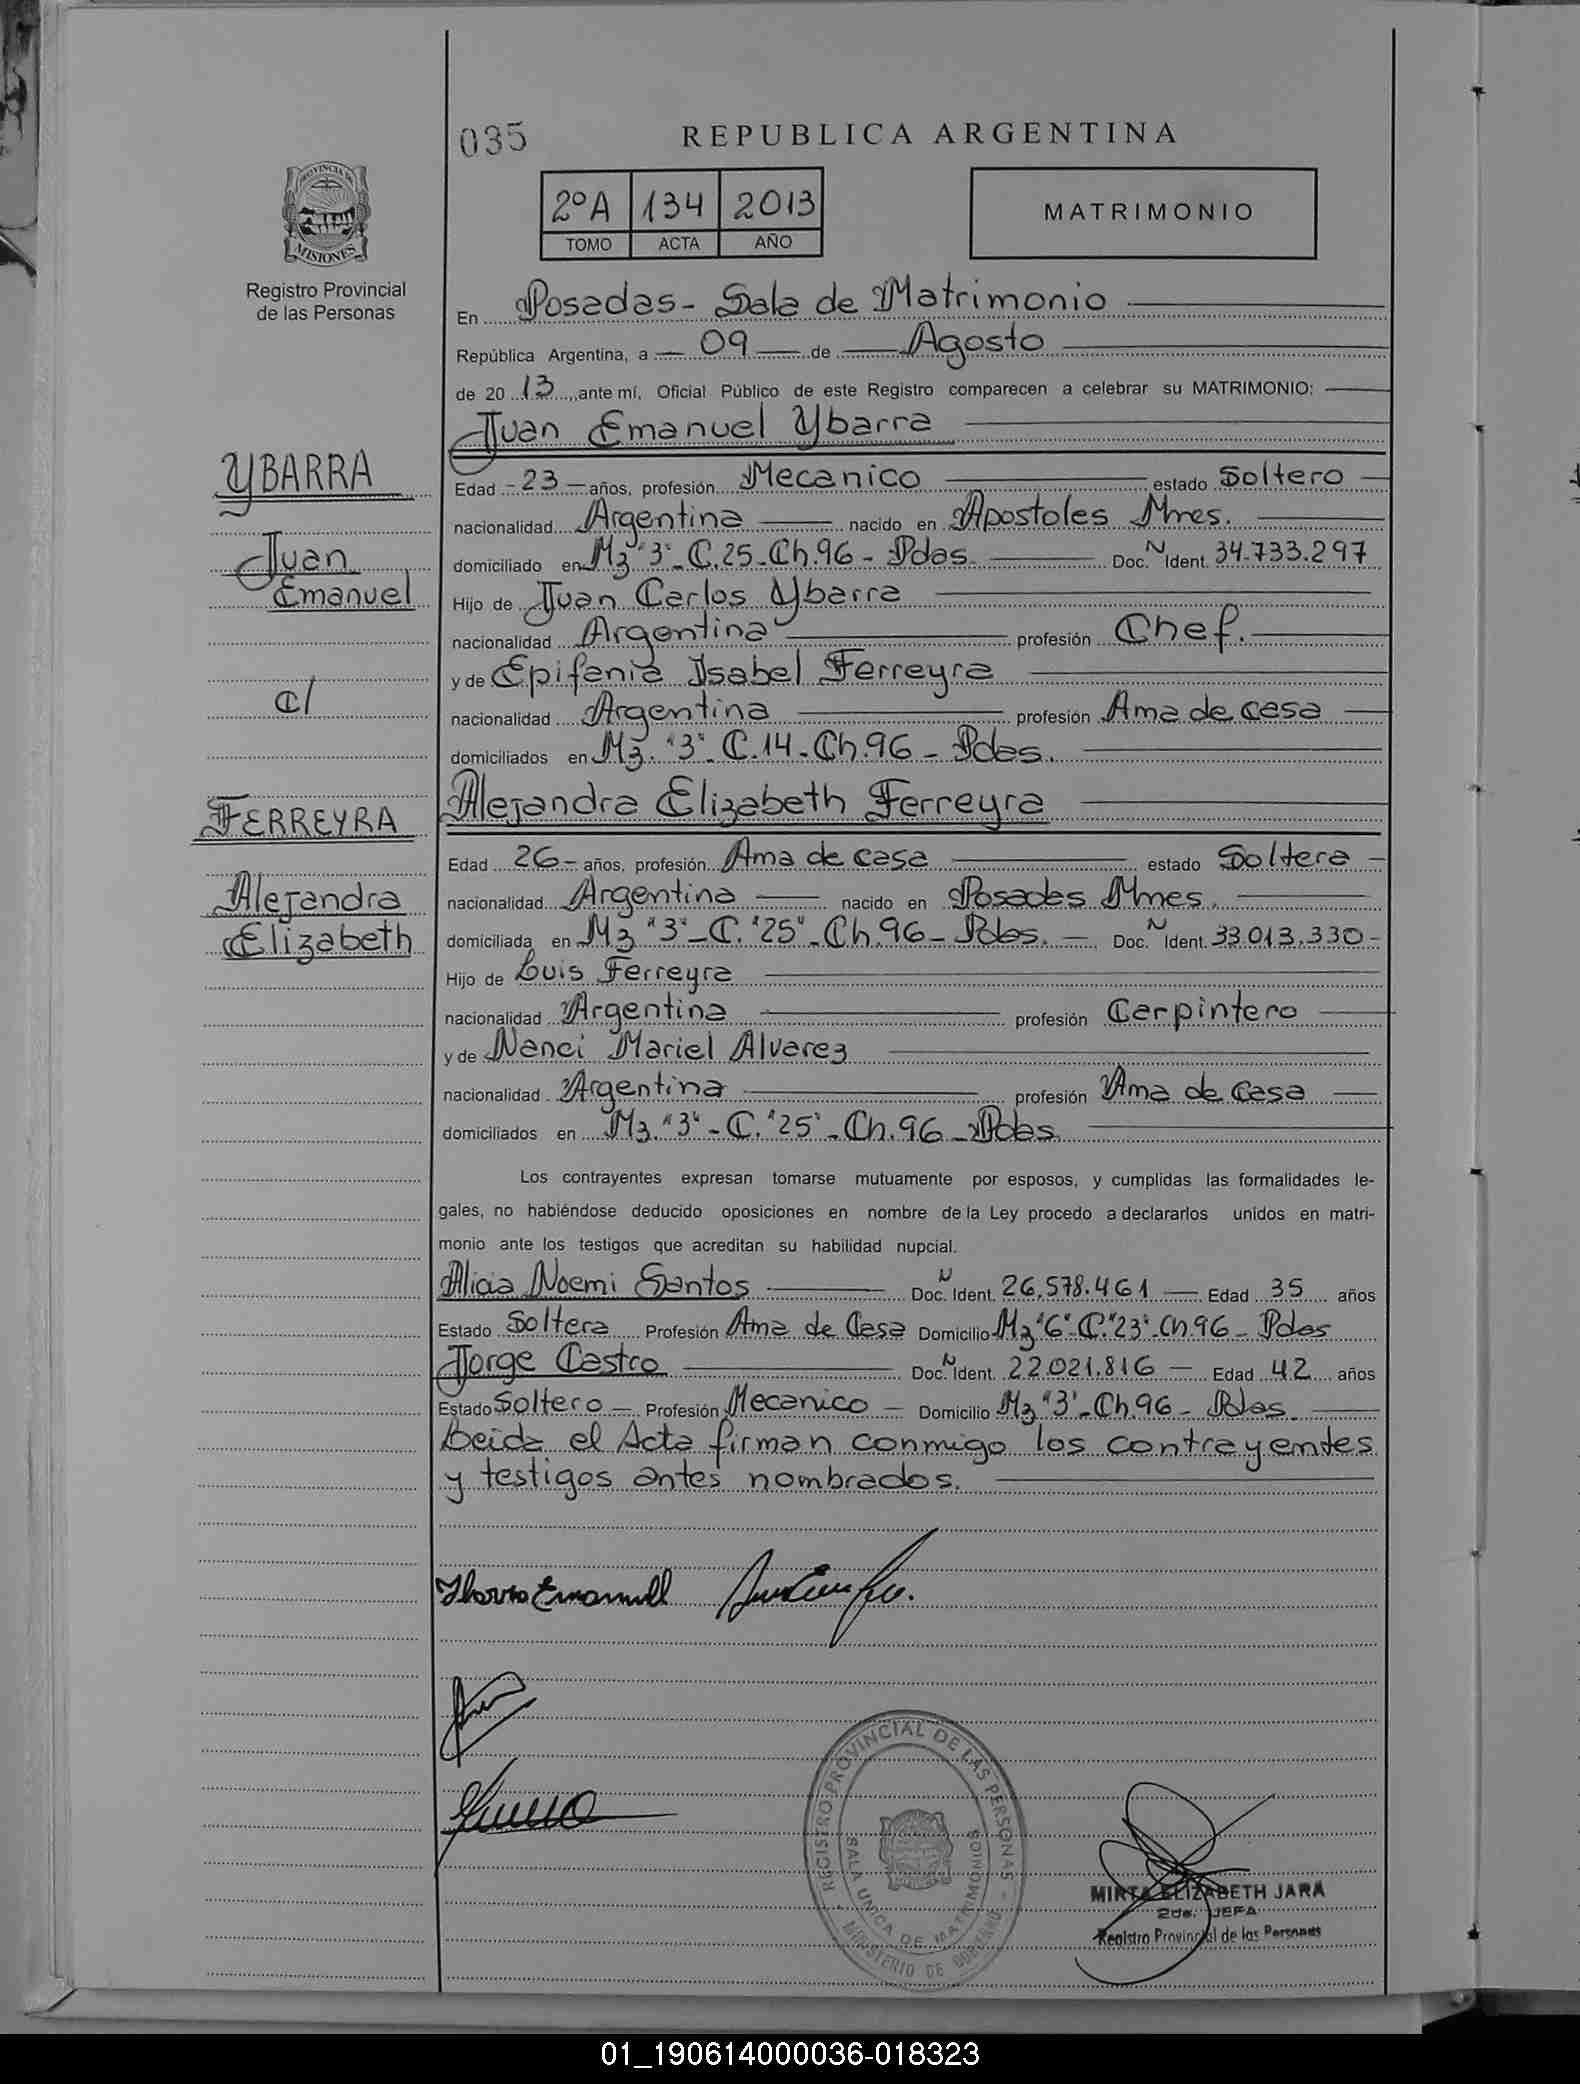 035
REPUBLICA ARGENTINA
2ºA 134 2013
TOMO ACTA AÑO
MATRIMONIO
PROVINCIA DE
MISIONES
Registro Provincial
de las Personas
En Posadas - Sala de Matrimonio
República Argentina, a 09 de Agosto
de 20 13, ante mí, Oficial Público de este Registro comparecen a celebrar su MATRIMONIO:
Juan Emanuel Ybarra
YBARRA
Juan
Emanuel
c/
FERREYRA
Alejandra
Elizabeth
Edad - 23 - años, profesión Mecanico estado Soltero
nacionalidad Argentina nacido en Apostoles Mnes.
domiciliado en Mz "3" - C. 25 - Ch. 96 - Pdas. Doc. N Ident. 34.733.297
Hijo de Juan Carlos Ybarra
nacionalidad Argentina profesión Chef.
y de Epifania Isabel Ferreyra
nacionalidad Argentina profesión Ama de casa
domiciliados en Mz. "3" - C. 14 - Ch. 96 - Pdas.
Alejandra Elizabeth Ferreyra
Edad 26 - años, profesión Ama de casa estado Soltera -
nacionalidad Argentina nacido en Posadas Mnes.
domiciliada en Mz "3" - C. "25" - Ch. 96 - Pdas. Doc. N Ident. 33.013.330 -
Hijo de Luis Ferreyra
nacionalidad Argentina profesión Carpintero
y de Nanci Mariel Alvarez
nacionalidad Argentina profesión Ama de Casa
domiciliados en Mz. "3" - C. "25" - Ch. 96 - Pdas.
Los contrayentes expresan tomarse mutuamente por esposos, y cumplidas las formalidades le-
gales, no habiéndose deducido oposiciones en nombre de la Ley procedo a declararlos unidos en matri-
monio ante los testigos que acreditan su habilidad nupcial.
Alicia Noemi Santos Doc. N Ident. 26.578.461 Edad 35 años
Estado Soltera Profesión Ama de Casa Domicilio Mz "6" - C. "23" - Ch. 96 - Pdas
Jorge Castro Doc. N Ident. 22.021.816 Edad 42 años
Estado Soltero Profesión Mecanico Domicilio Mz "3" - Ch. 96 - Pdas.
Leida el Acta firman conmigo los contrayentes
y testigos antes nombrados.
Ybarra Emanuell
REGISTRO PROVINCIAL DE LAS PERSONAS
SALA UNICA DE MATRIMONIOS
MINISTERIO DE GOBIERNO
MIRTA ELIZABETH JARA
2da. JEFA
Registro Provincial de las Personas
01_190614000036-018323